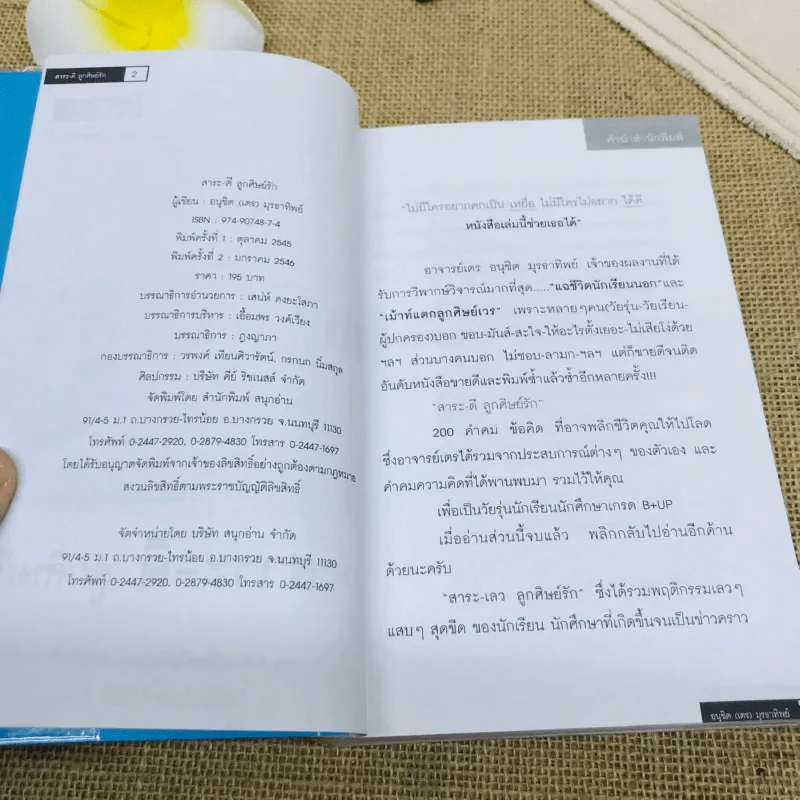 สาระ-ดี ลูกศิษย์รัก 2
สาระ-ดี ลูกศิษย์รัก
ผู้เขียน : อนุชิต (เตร) มุรธาทิพย์
ISBN : 974-90748-7-4
พิมพ์ครั้งที่ 1 : ตุลาคม 2545
พิมพ์ครั้งที่ 2 : มกราคม 2546
ราคา : 195 บาท
บรรณาธิการอำนวยการ : เสน่ห์ ดงยะโสภา
บรรณาธิการบริหาร : เอื้อมพร วงค์เวียง
บรรณาธิการ : ภูงญาภา
กองบรรณาธิการ : วรพงศ์ เทียนศิวารัตน์, กรกนก นิ่มสกุล
ศิลปกรรม : บริษัท คีย์ ริชเนสส์ จำกัด
จัดพิมพ์โดย สำนักพิมพ์ สนุกอ่าน
91/4-5 ม.1 ถ.บางกรวย-ไทรน้อย อ.บางกรวย จ.นนทบุรี 11130
โทรศัพท์ 0-2447-2920, 0-2879-4830 โทรสาร 0-2447-1697
โดยได้รับอนุญาตจัดพิมพ์จากเจ้าของลิขสิทธิ์อย่างถูกต้องตามกฎหมาย
สงวนลิขสิทธิ์ตามพระราชบัญญัติลิขสิทธิ์
จัดจำหน่ายโดย บริษัท สนุกอ่าน จำกัด
91/4-5 ม.1 ถ.บางกรวย-ไทรน้อย อ.บางกรวย จ.นนทบุรี 11130
โทรศัพท์ 0-2447-2920, 0-2879-4830 โทรสาร 0-2447-1697
คำนำสำนักพิมพ์
"ไม่มีใครอยากตกเป็น เหยื่อ ไม่มีใครไม่อยาก ได้ดี
หนังสือเล่มนี้ช่วยเธอได้"
อาจารย์เตร อนุชิต มุรธาทิพย์ เจ้าของผลงานที่ได้
รับการวิพากษ์วิจารณ์มากที่สุด....."แฉชีวิตนักเรียนนอก"และ
"เม้าท์แตกลูกศิษย์เวร" เพราะหลายๆคน(วัยรุ่น-วัยเรียน-
ผู้ปกครอง)บอก ชอบ-มันส์-สะใจ-ให้อะไรตั้งเยอะ-ไม่เสียโง่ด้วย
ฯลฯ ส่วนบางคนบอก ไม่ชอบ-ลามก-ฯลฯ แต่ก็ขายดีจนติด
อันดับหนังสือขายดีและพิมพ์ซ้ำแล้วซ้ำอีกหลายครั้ง!!!
"สาระ-ดี ลูกศิษย์รัก"
200 คำคม ข้อคิด ที่อาจพลิกชีวิตคุณให้ไปโลด
ซึ่งอาจารย์เตรได้รวมจากประสบการณ์ต่างๆ ของตัวเอง และ
คำคมความคิดที่ได้พานพบมา รวมไว้ให้คุณ
เพื่อเป็นวัยรุ่นนักเรียนนักศึกษาเกรด B+UP
เมื่ออ่านส่วนนี้จบแล้ว พลิกกลับไปอ่านอีกด้าน
ด้วยนะครับ
"สาระ-เลว ลูกศิษย์รัก" ซึ่งได้รวมพฤติกรรมเลวๆ
แสบๆ สุดขีด ของนักเรียน นักศึกษาที่เกิดขึ้นจนเป็นข่าวคราว
อนุชิต (เตร) มุรธาทิพย์